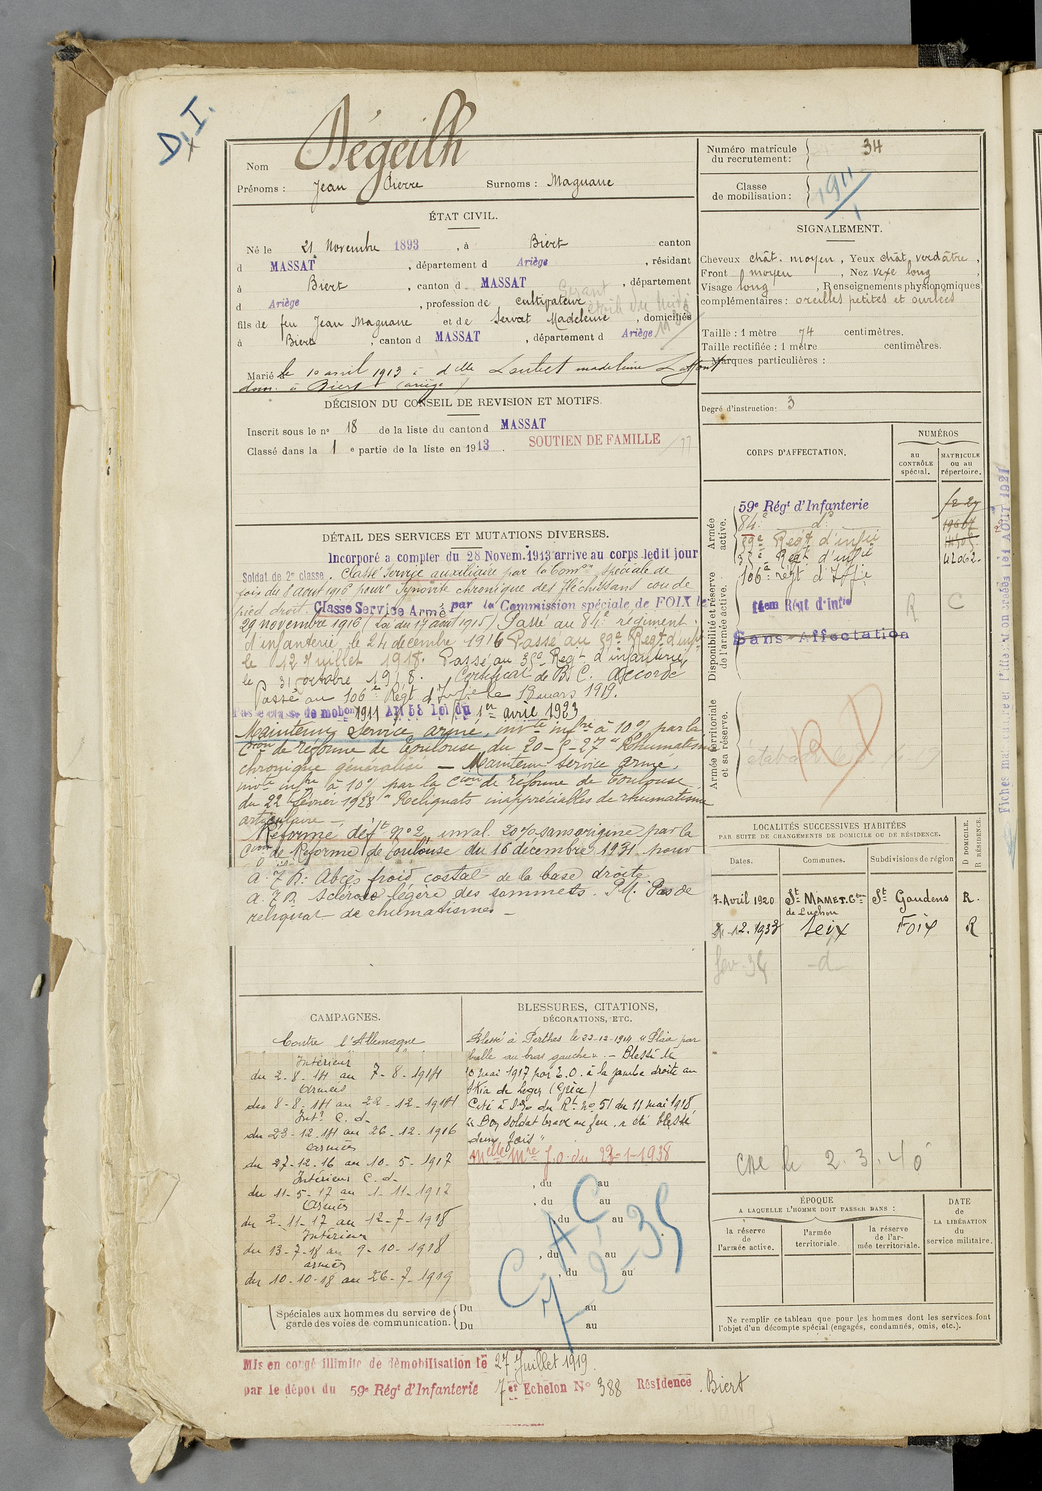 D.I.
Nom Dégeilh
Prénoms : Jean Pierre Surnoms : Maguane
ÉTAT CIVIL.
Né le 21 Novembre 1893, à Biert canton
d MASSAT, département d Ariège, résidant
à Biert, canton d MASSAT, département
d Ariège, profession de cultivateur
fils de feu Jean Maguane et de Servat Madeleine, domiciliés
à Biert, canton d MASSAT, département d Ariège
Marié le 10 avril 1913 à dlle Loubet madeleine
dom. à Biert (ariège)
DÉCISION DU CONSEIL DE REVISION ET MOTIFS.
Inscrit sous le n° 18 de la liste du canton d MASSAT
Classé dans la 1 e partie de la liste en 1913.
SOUTIEN DE FAMILLE
DÉTAIL DES SERVICES ET MUTATIONS DIVERSES.
Incorporé a compter du 28 Novem. 1913 arrive au corps ledit jour
Soldat de 2e classe. Classé Service auxiliaire par la Comon spéciale de
foix du 8 aout 1916 pour Synovite chronique des fléchissant cou de
pied droit. Classé Service Armé par la Commission spéciale de FOIX le
29 novembre 1916 (Loi du 17 aout 1915) Passé au 84e régiment
d'infanterie le 24 decembre 1916 Passé au 59e Regt d'infie
le 12 Juillet 1918. Passé au 35e Regt d'infanterie
le 31 octobre 1918. Certificat de B. C. accordé
Passé au 106e Regt d'Infie le 13 mars 1919.
Passé classe de mobon 1911 Art 58 Loi du 1er avril 1923
Maintenu service armé, invte infre à 10% par la
Cion de réforme de Toulouse du 20-5-27 "Rhumatisme
chronique généralisé — Maintenu service armé,
invte infre à 10% par la Cion de réforme de Toulouse
du 22 février 1928 "Reliquats inappréciables de rhumatisme
articulaire —
Réformé déft n°2 inval. 20% sans origine par la
Cion de Réforme de Toulouse du 16 decembre 1931 pour
Abcès froid costal de la base droite
sclérose légère des sommets. P.M. Pas de
reliquat de rhumatismes —
CAMPAGNES.
Contre l'Allemagne
Intérieur
du 2-8-14 au 7-8-1914
Armées
du 8-8-14 au 22-12-1914
Intr C. d.
du 23-12-14 au 26-12-1916
Armées
du 27-12-16 au 10-5-1917
Intérieur C. d.
du 11-5-17 au 1-11-1917
Armées
du 2-11-17 au 12-7-1918
Intérieur
du 13-7-18 au 9-10-1918
armées
du 10-10-18 au 26-7-1919
Spéciales aux hommes du service de
garde des voies de communication.
Du au
Du au
BLESSURES, CITATIONS,
DÉCORATIONS, ETC.
Blessé à Perthes le 22-12-1914 "Plaie par
balle au bras gauche". — Blessé le
10 mai 1917 par E.O. à la jambe droite au
Skra di Legen (Grèce)
Cité à l'ordre du Rt n° 51 du 11 mai 1918
"Bon soldat brave au feu, a été blessé
deux fois"
Mdlle Mre J.O. du 29-1-1938
, du au
, du au
, du au
, du au
, du au
C.A.C
7-2-35
Mis en congé illimité de démobilisation le 27 Juillet 1919.
par le dépôt du 59e Régt d'Infanterie 7er Echelon N° 388 Résidence Biert
Numéro matricule
du recrutement : 34
Classe
de mobilisation : 1911
SIGNALEMENT.
Cheveux chât. moyen, Yeux chât. verdâtre,
Front moyen, Nez vexe long
Visage long, Renseignements physionomiques
complémentaires : oreilles petites et ourlées
Taille : 1 mètre 74 centimètres.
Taille rectifiée : 1 mètre centimètres.
Marques particulières :
Degré d'instruction : 3
CORPS D'AFFECTATION.
NUMÉROS
au
CONTRÔLE
spécial.
MATRICULE
ou au
répertoire.
Armée
active.
59e Régt d'Infanterie
84e d°
59e Regt d'infie
35e Regt d'infie
106e regt d'Infie
Disponibilité et réserve
de l'armée active.
14em Régt d'Infie
R C
Sans Affectation
Armée territoriale
et sa réserve.
RD
LOCALITÉS SUCCESSIVES HABITÉES
PAR SUITE DE CHANGEMENTS DE DOMICILE OU DE RÉSIDENCE.
Dates. Communes. Subdivisions de région
D DOMICILE.
R RÉSIDENCE.
7 Avril 1920 St MAMET. Gne de Luchon St Gaudens R.
8-12.1933 Seix Foix R
fev. 34 -d-
Cne le 2.3.40
ÉPOQUE
A LAQUELLE L'HOMME DOIT PASSER DANS :
la réserve
de
l'armée active.
l'armée
territoriale.
la réserve
de l'ar-
mée territoriale.
DATE
de
LA LIBÉRATION
du
service militaire.
Ne remplir ce tableau que pour les hommes dont les services font
l'objet d'un décompte spécial (engagés, condamnés, omis, etc.).